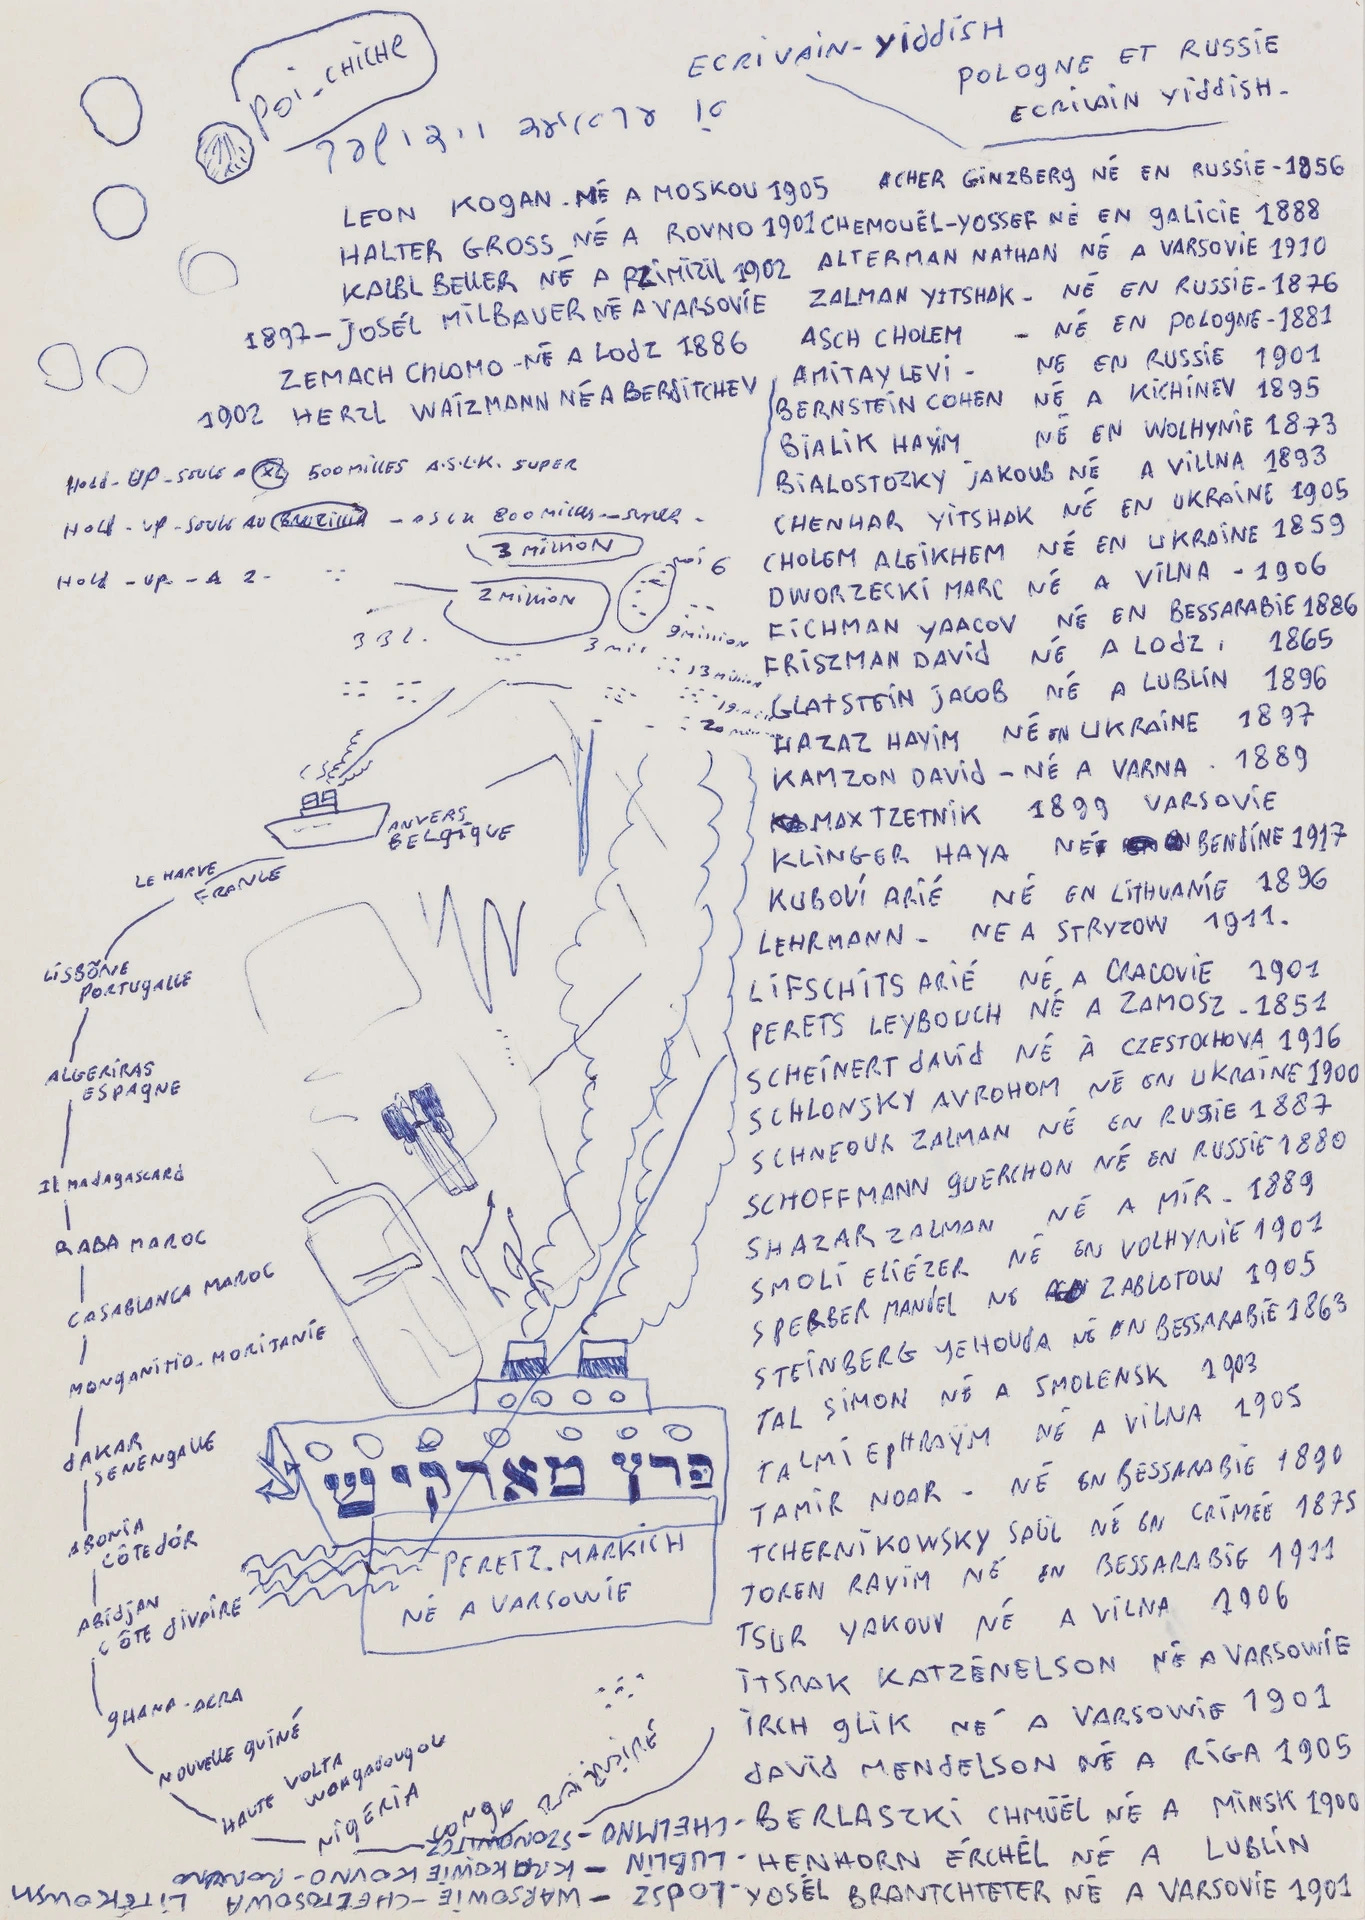 POI-CHICHE
ECRIVAIN-YIDDISH
POLOGNE ET RUSSIE
ECRIVAIN YIDDISH-
LEON KOGAN-NÉ A MOSKOU 1905
HALTER GROSS NÉ A ROVNO 1901
KALBL BELLER NÉ A 1902
1897-JOSÉL MILBAUER NÉ A VARSOVIE
ZEMACH CHLOMO-NÉ A LODZ 1886
1902 HERZL WAIZMANN NÉ A BERDITCHEV
ACHER GINZBERG NÉ EN RUSSIE-1856
CHEMOUËL-YOSSEF NÉ EN GALICIE 1888
ALTERMAN NATHAN NÉ A VARSOVIE 1910
ZALMAN YITSHAK- NÉ EN RUSSIE-1876
ASCH CHOLEM - NÉ EN POLOGNE-1881
AMITAY LEVI- NE EN RUSSIE 1901
BERNSTEIN COHEN NÉ A KICHINEV 1895
BIALIK HAYIM NÉ EN WOLHYNIE 1873
BIALOSTOZKY JAKOUB NÉ A VILLNA 1893
CHENHAR YITSHAK NÉ EN UKRAINE 1905
CHOLEM ALEIKHEM NÉ EN UKRAINE 1859
DWORZECKI MARC NÉ A VILNA - 1906
FICHMAN YAACOV NÉ EN BESSARABIE 1886
FRISZMAN DAVID NÉ A LODZ. 1865
GLATSTEIN JACOB NÉ A LUBLIN 1896
HAZAZ HAYIM NÉ EN UKRAINE 1897
KAMZON DAVID-NÉ A VARNA. 1889
MAX TZETNIK 1899 VARSOVIE
KLINGER HAYA NÉ BENDINE 1917
KUBOVI ARIÉ NÉ EN LITHUANIE 1896
LEHRMANN- NE A STRYZOW 1911.
LIFSCHITS ARIÉ NÉ A CRACOVIE 1901
PERETS LEYBOUCH NÉ A ZAMOSZ-1851
SCHEINERT DAVID NÉ À CZESTOCHOVA 1916
SCHLONSKY AVROHOM NÉ EN UKRAINE 1900
SCHNEOUR ZALMAN NÉ EN RUSIE 1887
SCHOFFMANN GUERCHON NÉ EN RUSSIE 1880
SHAZAR ZALMAN NÉ A MIR-1889
SMOLI ELIÉZER NÉ EN VOLHYNIE 1901
SPERBER MANDEL NE ZABLOTOW 1905
STEINBERG YEHOUDA NÉ EN BESSARABIE 1863
TAL SIMON NÉ A SMOLENSK 1903
TALMI EPHRAYM NÉ A VILNA 1905
TAMIR NOAR - NÉ EN BESSARABIE 1890
TCHERNIKOWSKY SAÜL NÉ EN CRIMÉÉ 1875
TOREN RAYIM NÉ EN BESSARABIE 1911
TSUR YAKOUV NÉ A VILNA 1906
ITSRAK KATZENELSON NÉ A VARSOWIE
IRCH GLIK NÉ A VARSOWIE 1901
DAVID MENDELSON NÉ A RIGA 1905
BERLASZKI CHMÜËL NÉ A MINSK 1900
HENHORN ÉRCHÉL NÉ A LUBLIN
YOSÉL BRANTCHTETER NÉ A VARSOVIE 1901
HOLD-UP-SOULE A XL 500 MILLES A.S.L.K. SUPER
HOLD-UP-SOULE AU 800 MILLES-SUPER-
HOLD-UP-A 2-
3 MILLION
2 MILLION
MOI 6
3 3 L.
9 MILLION
3 MIL
13 MILLION
ANVERS
BELGIQUE
LE HARVE
FRANCE
LISBÔNE
PORTUGALLE
ALGERIRAS
ESPAGNE
IL MADAGASCARD
RABA MAROC
CASABLANCA MAROC
MONGANITIO-MORITANIE
DAKAR
SENENGALLE
ABONIA
CÔTE DÓR
ABIDJAN
CÔTE DIVOIRE
GHANA-ACRA
NOUVELLE GUINÉ
HAUTE VOLTA
WOAGADOUGOU
NIGÉRIA
CONGO
פרץ מארקיש
PERETZ-MARKICH
NÉ A VARSOWIE
CHELMNO-
LUBLIN - KRAKOWIE KOVNO-
LODSZ - WARSOWIE-